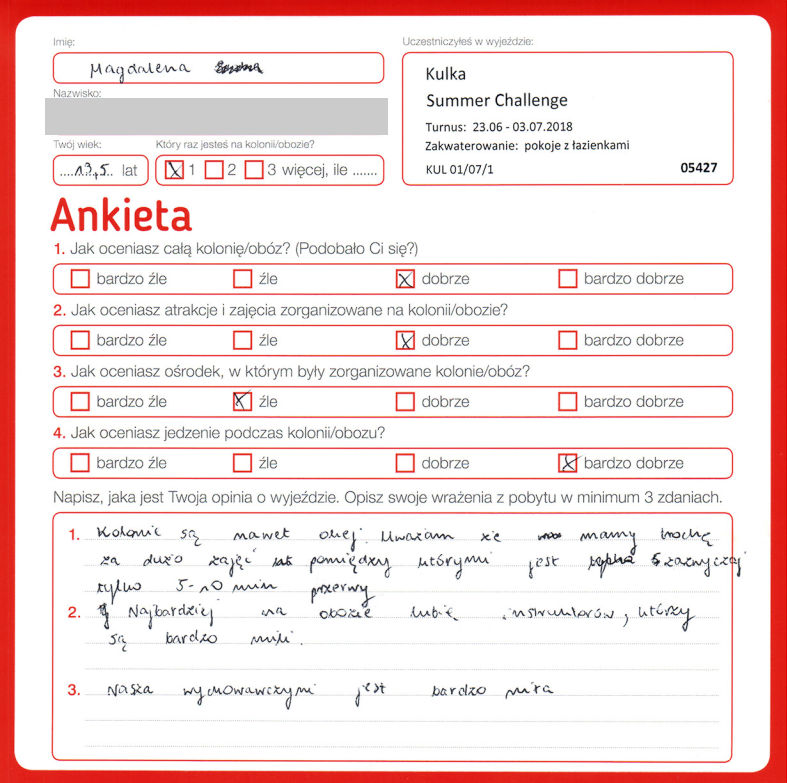 Imię:
Magdalena
Nazwisko:
Twój wiek:
Który raz jesteś na kolonii/obozie?
....13,5.. lat
1 2 3 więcej, ile .......
Uczestniczyłeś w wyjeździe:
Kulka
Summer Challenge
Turnus: 23.06 - 03.07.2018
Zakwaterowanie: pokoje z łazienkami
KUL 01/07/1 05427
Ankieta
1. Jak oceniasz całą kolonię/obóz? (Podobało Ci się?)
bardzo źle źle dobrze bardzo dobrze
2. Jak oceniasz atrakcje i zajęcia zorganizowane na kolonii/obozie?
bardzo źle źle dobrze bardzo dobrze
3. Jak oceniasz ośrodek, w którym były zorganizowane kolonie/obóz?
bardzo źle źle dobrze bardzo dobrze
4. Jak oceniasz jedzenie podczas kolonii/obozu?
bardzo źle źle dobrze bardzo dobrze
Napisz, jaka jest Twoja opinia o wyjeździe. Opisz swoje wrażenia z pobytu w minimum 3 zdaniach.
1. Kolonie są nawet okej. Uważam że mamy trochę
za dużo zajęć pomiędzy którymi jest zazwyczaj
tylko 5-10 min przerwy
2. Najbardziej na obozie lubię instruktorów, którzy
są bardzo mili.
3. Nasza wychowawczyni jest bardzo miła